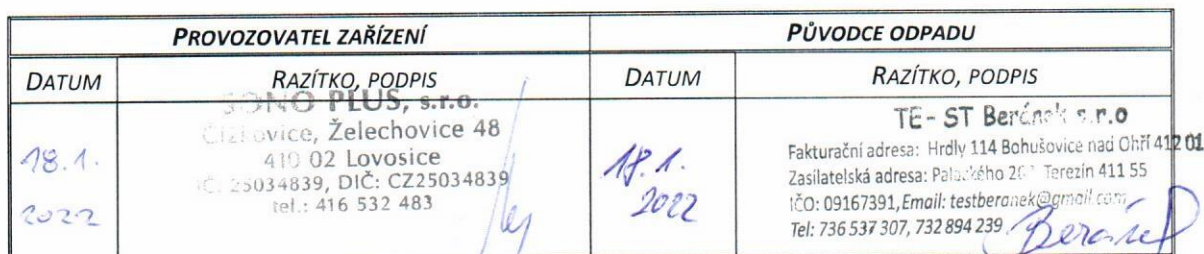 PROVOZOVATEL ZAŘÍZENÍ
PŮVODCE ODPADU
DATUM
RAZÍTKO, PODPIS
DATUM
RAZÍTKO, PODPIS
18.1.
2022
SONO PLUS, s.r.o.
Čížkovice, Želechovice 48
410 02 Lovosice
IČ: 25034839, DIČ: CZ25034839
tel.: 416 532 483
18.1.
2022
TE-ST Beránek s.r.o
Fakturační adresa: Hrdly 114 Bohušovice nad Ohří 412 01
Zasilatelská adresa: Palackého Terezín 411 55
IČO: 09167391, Email: testberanek@gmail.com
Tel: 736 537 307, 732 894 239
Beránek